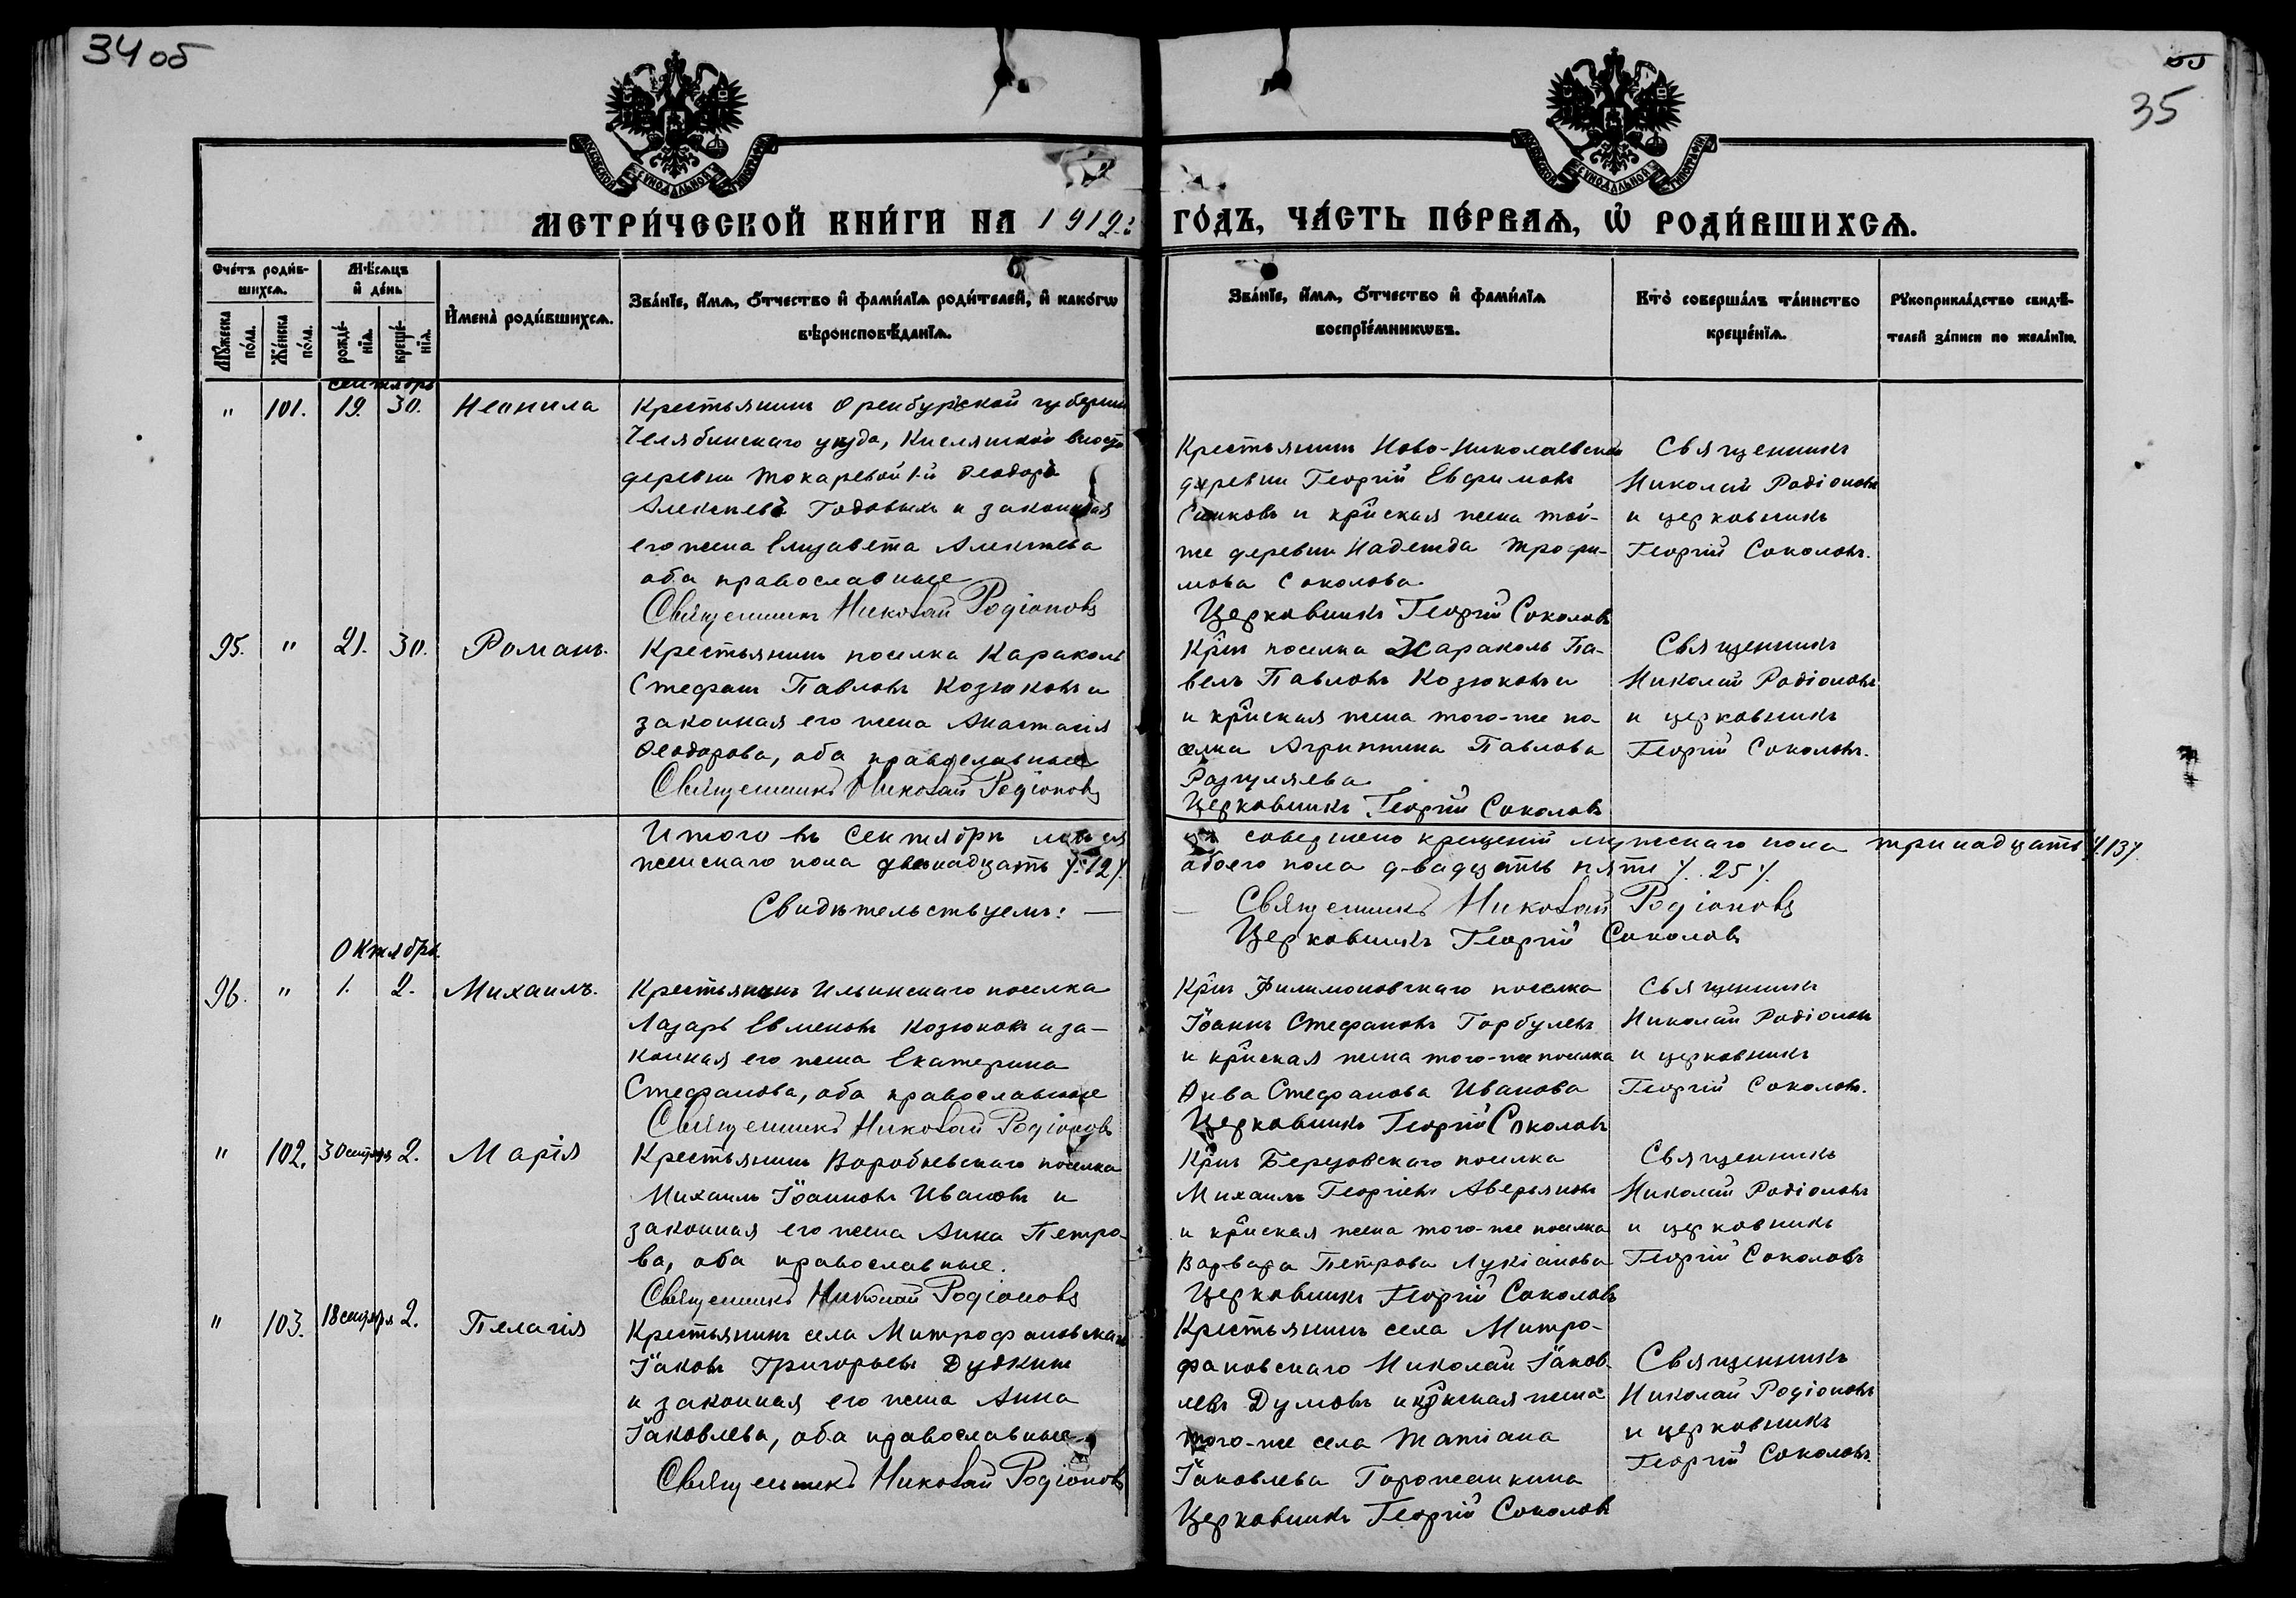 34 об
35
МОСКОВСКОЙ СѴНОДАЛЬНОЙ ТИПОГРАФІИ
МОСКОВСКОЙ СѴНОДАЛЬНОЙ ТИПОГРАФІИ
МЕТРИ́ЧЕСКОЙ КНИ́ГИ НА 1912 ГО́ДЪ, ЧА́СТЬ ПЕ́РВАѦ, Ѡ҆ РОДИ́ВШИХСѦ.
Сче́тъ роди́в-
шихсѧ.
Мꙋ́жеска
по́ла.
Же́нска
по́ла.
Мѣ́сѧцъ
и҆ де́нь
рожде́-
нїѧ.
креще́-
нїѧ.
И҆мена̀ роди́вшихсѧ.
Зва́нїе, и҆́мѧ, ѻ҆́тчество и҆ фами́лїѧ роди́телей, и҆ како́гѡ
вѣроисповѣ́данїѧ.
Зва́нїе, и҆́мѧ, ѻ҆́тчество и҆ фами́лїѧ
воспрїе́мникѡвъ.
Кто̀ соверша́лъ та́инство
креще́нїѧ.
Рꙋкоприкла́дство свидѣ́-
телей за́писи по жела́нїю.
сентябрь
" 101. 19. 30. Неонила
Крестьянинъ Оренбургской губерніи
Челябинскаго уѣзда, Кислянской волости
деревни Токаревой 1-й Ѳеодоръ
Алексѣевъ Годовыхъ и законная
его жена Елизавета Алексѣева
оба православные
Священникъ Николай Родіоновъ
Крестьянинъ Ново-Николаевской
деревни Георгій Евфимовъ
и кр̑нская жена той-
же деревни Надежда Трофи-
мова Соколова
Церковникъ Георгій Соколовъ
Священникъ
Николай Родіоновъ
и церковникъ
Георгій Соколовъ.
95. " 21. 30. Романъ.
Крестьянинъ поселка Караколь
Стефанъ Павловъ Козюковъ и
законная его жена Анастасія
Ѳеодорова, оба православные
Священникъ Николай Родіоновъ
Кр̑нъ поселка Караколь Па-
велъ Павловъ Козюковъ и
и кр̑нская жена того-же по-
селка Агриппина Павлова
Разгуляева
Церковникъ Георгій Соколовъ
Священникъ
Николай Родіоновъ
и церковникъ
Георгій Соколовъ.
Итого въ Сентябрѣ мѣсяцѣ совершено крещеній мужскаго пола тринадцать /.13/.
женскаго пола двенадцать /.12/. обоего пола двадцать пять /.25/.
Свидѣтельствуемъ: — Священникъ Николай Родіоновъ
Церковникъ Георгій Соколовъ
Октябрь.
96. " 1. 2. Михаилъ.
Крестьянинъ Ильинскаго поселка
Лазарь Евменовъ Козюковъ и за-
конная его жена Екатерина
Стефанова, оба православные
Священникъ Николай Родіоновъ
Кр̑нъ Филимоновскаго поселка
Іоаннъ Стефановъ Горбулевъ
и кр̑нская жена того-же поселка
Анна Стефанова Иванова
Церковникъ Георгій Соколовъ
Священникъ
Николай Родіоновъ
и церковникъ
Георгій Соколовъ.
" 102. 30 сентября 2. Марія
Крестьянинъ Воробьевскаго поселка
Михаилъ Іоанновъ Ивановъ и
законная его жена Анна Петро-
ва, оба православные.
Священникъ Николай Родіоновъ
Кр̑нъ Березовскаго поселка
Михаилъ Георгіевъ Аверьяновъ
и кр̑нская жена того-же поселка
Варвара Петрова Лукіанова
Церковникъ Георгій Соколовъ
Священникъ
Николай Родіоновъ
и церковникъ
Георгій Соколовъ
" 103. 18 сентября 2. Пелагія
Крестьянинъ села Митрофановскаго
Іаковъ Григорьевъ Дудкинъ
и законная его жена Анна
Іаковлева, оба православные
Священникъ Николай Родіоновъ
Крестьянинъ села Митро-
фановскаго Николай Іаков-
левъ Думовъ и кр̑нская жена
того-же села Татіана
Іаковлева Горожанкина
Церковникъ Георгій Соколовъ
Священникъ
Николай Родіоновъ
и церковникъ
Георгій Соколовъ